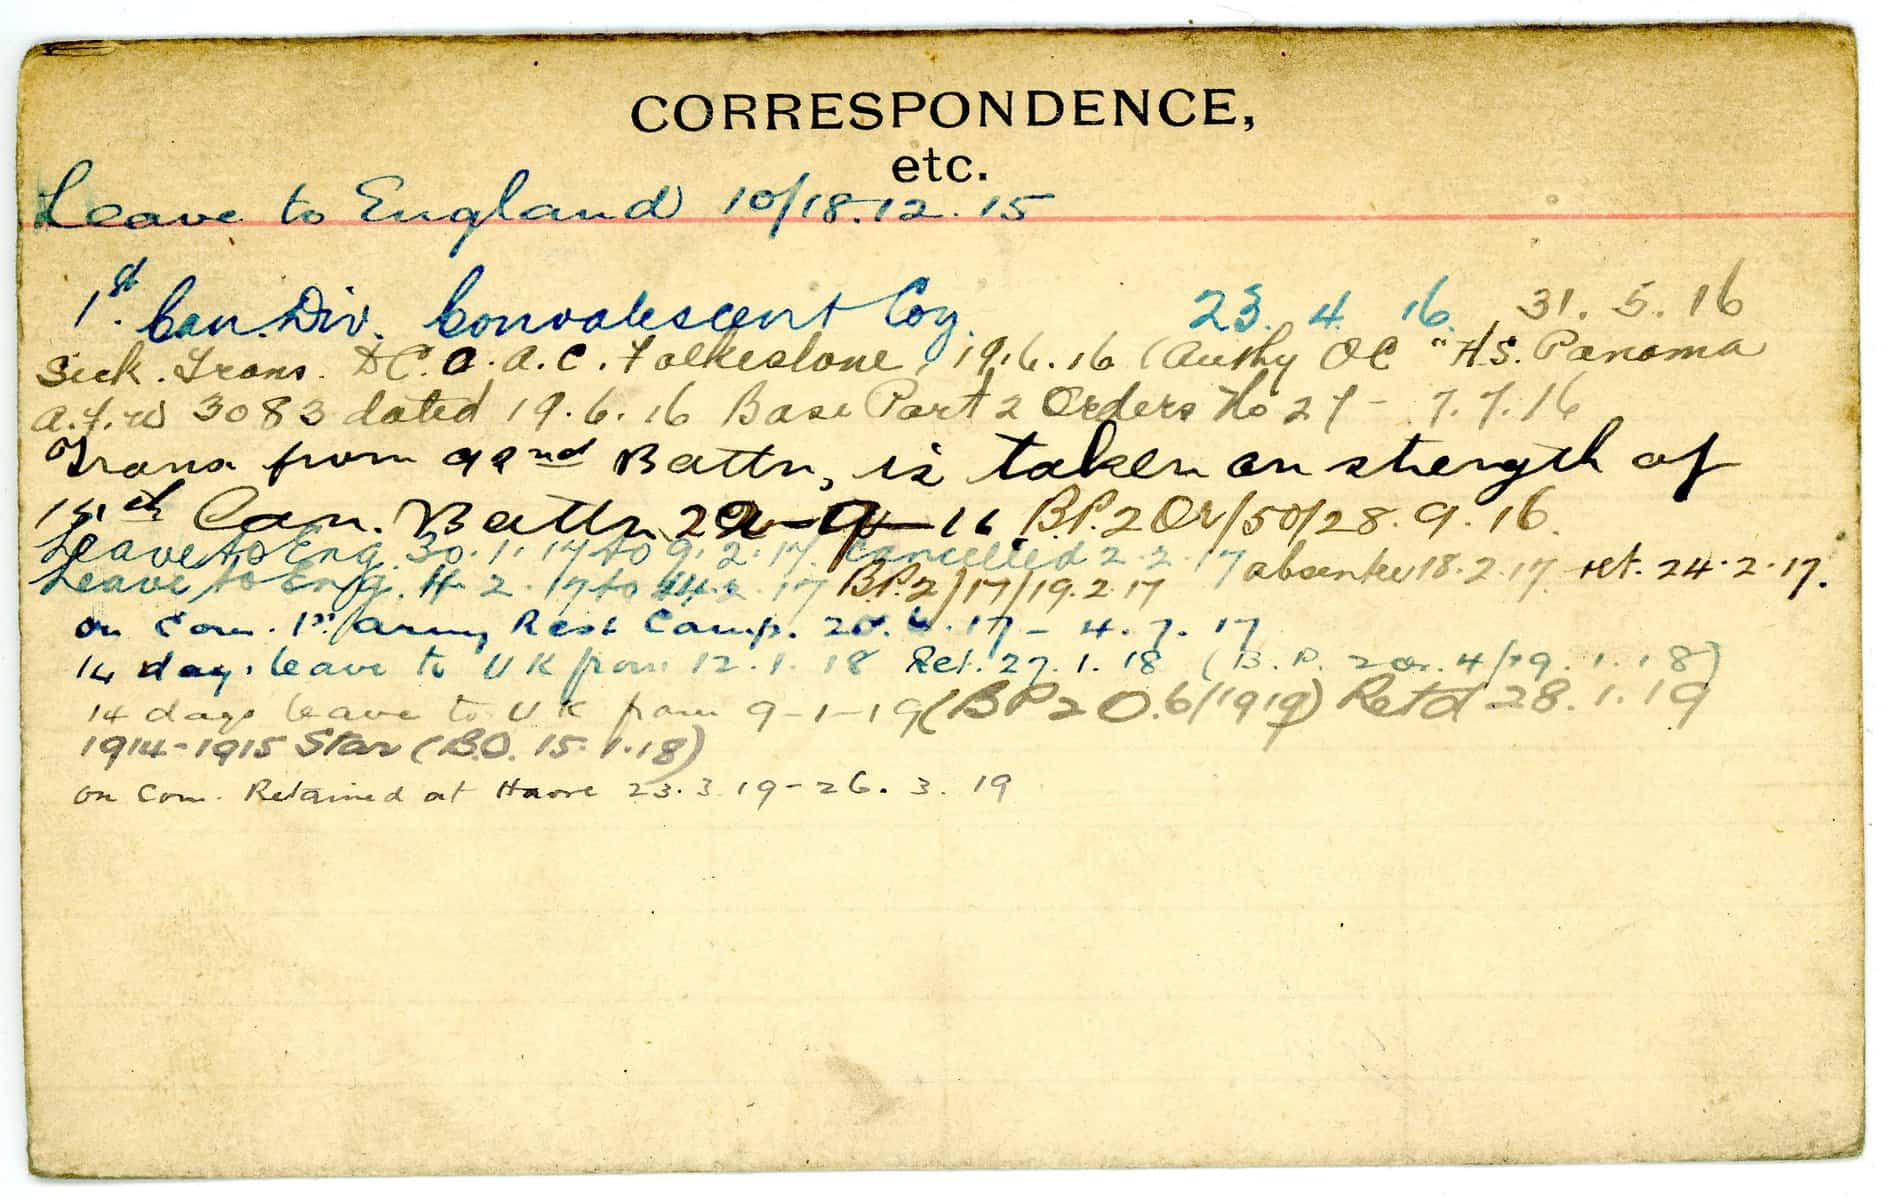 CORRESPONDENCE,
etc.
Leave to England 10/18.12.15
1st Can. Div. Convalescent Coy. 23. 4. 16. 31. 5. 16
Sick. Trans. to C.A.A.C. Folkestone, 19.6.16 (Authy OC "H.S. Panama
A.F.W 3083 dated 19.6.16 Base Part 2 Orders No 27 - 7.7.16
Trans from 92nd Battn, is taken on strength of
15th Can. Battn 22-9-16 B.P.2 Or/50/28.9.16.
Leave to Eng. 30.1.17 to 9.2.17. Cancelled 2.2.17 absentee 18.2.17. ret. 24.2.17.
Leave to Eng. 4. 2. 17 to 14.2.17 B.P.2/17/19.2.17
on Com. 1st Army Rest Camp. 20.6.17 - 4.7.17
14 days leave to UK from 12.1.18 Ret. 27.1.18 (B.P. 2 or. 4/29.1.18)
14 days leave to UK from 9-1-19 (BP2 O.6/1919) Retd 28.1.19
1914-1915 Star (B.O. 15.1.18)
on Com. Retained at Havre 23.3.19-26.3.19